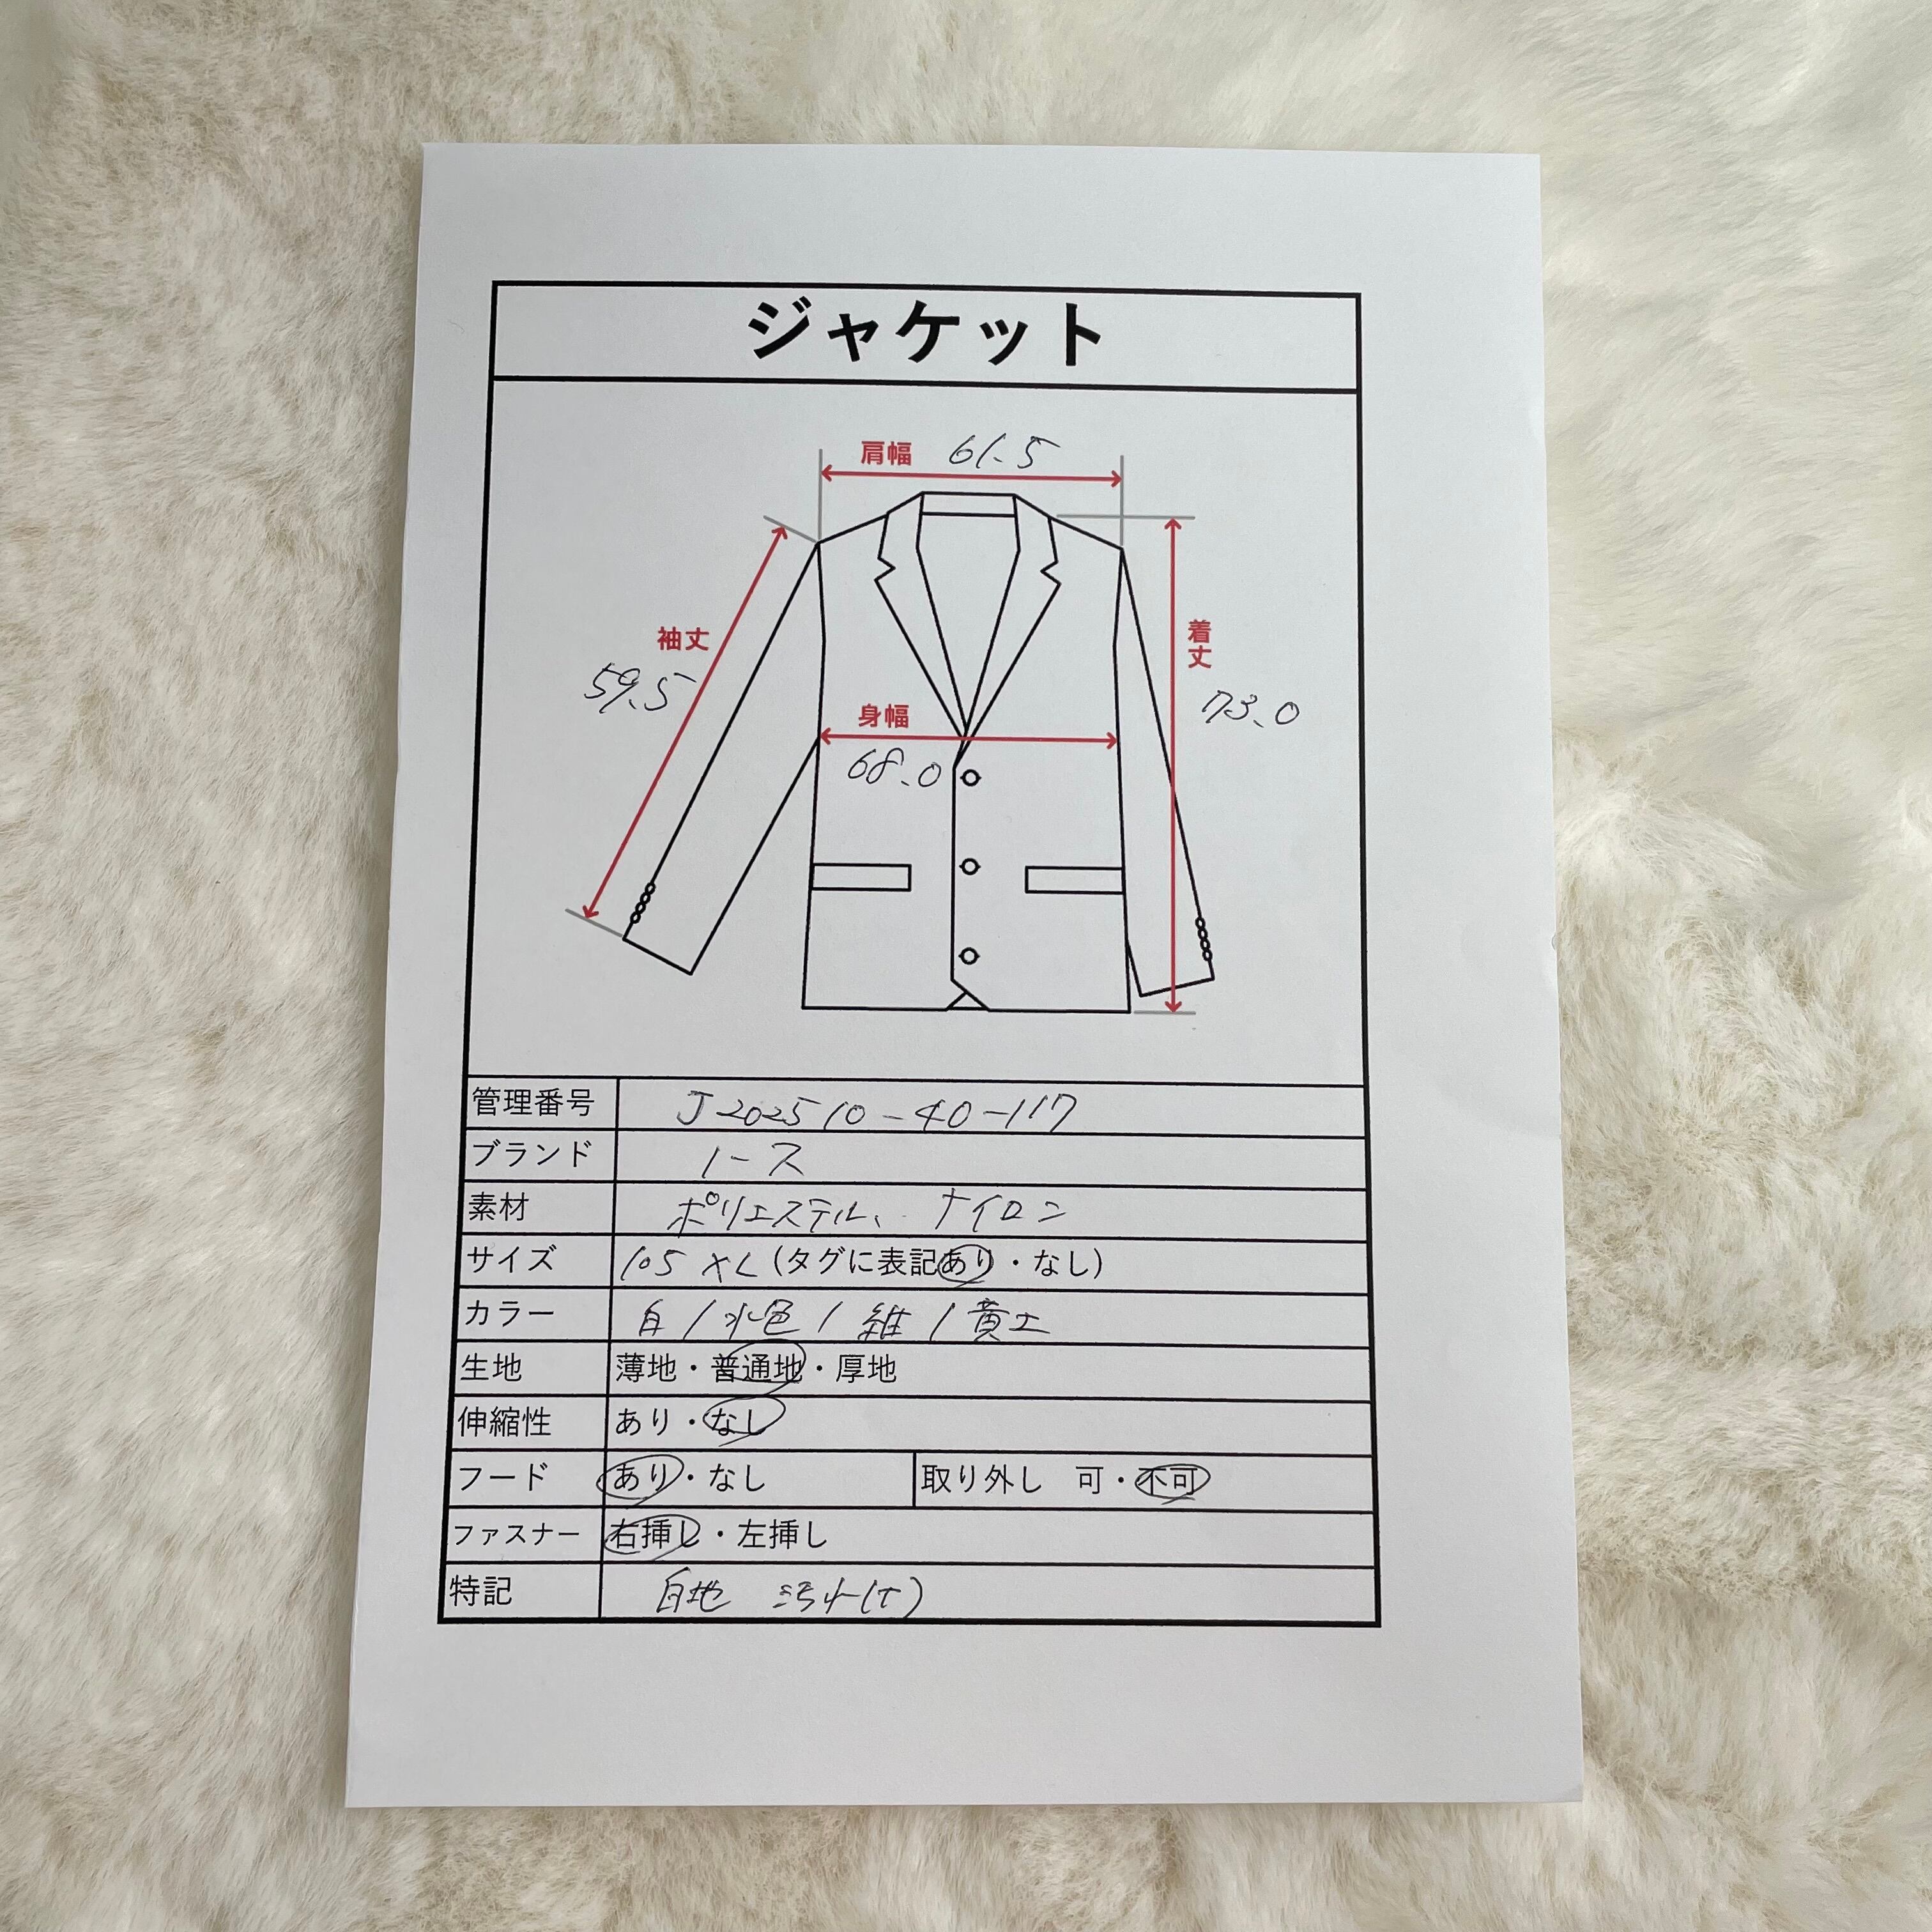 ジャケット
肩幅 61.5
袖丈
59.5
着丈
73.0
身幅
68.0
管理番号 J202510-40-117
ブランド ノース
素材 ポリエステル、ナイロン
サイズ 105 XL (タグに表記あり・なし)
カラー 白/水色/ /黄土
生地 薄地・普通地・厚地
伸縮性 あり・なし
フード あり・なし 取り外し 可・不可
ファスナー 右挿し・左挿し
特記 白地 汚れ(+)